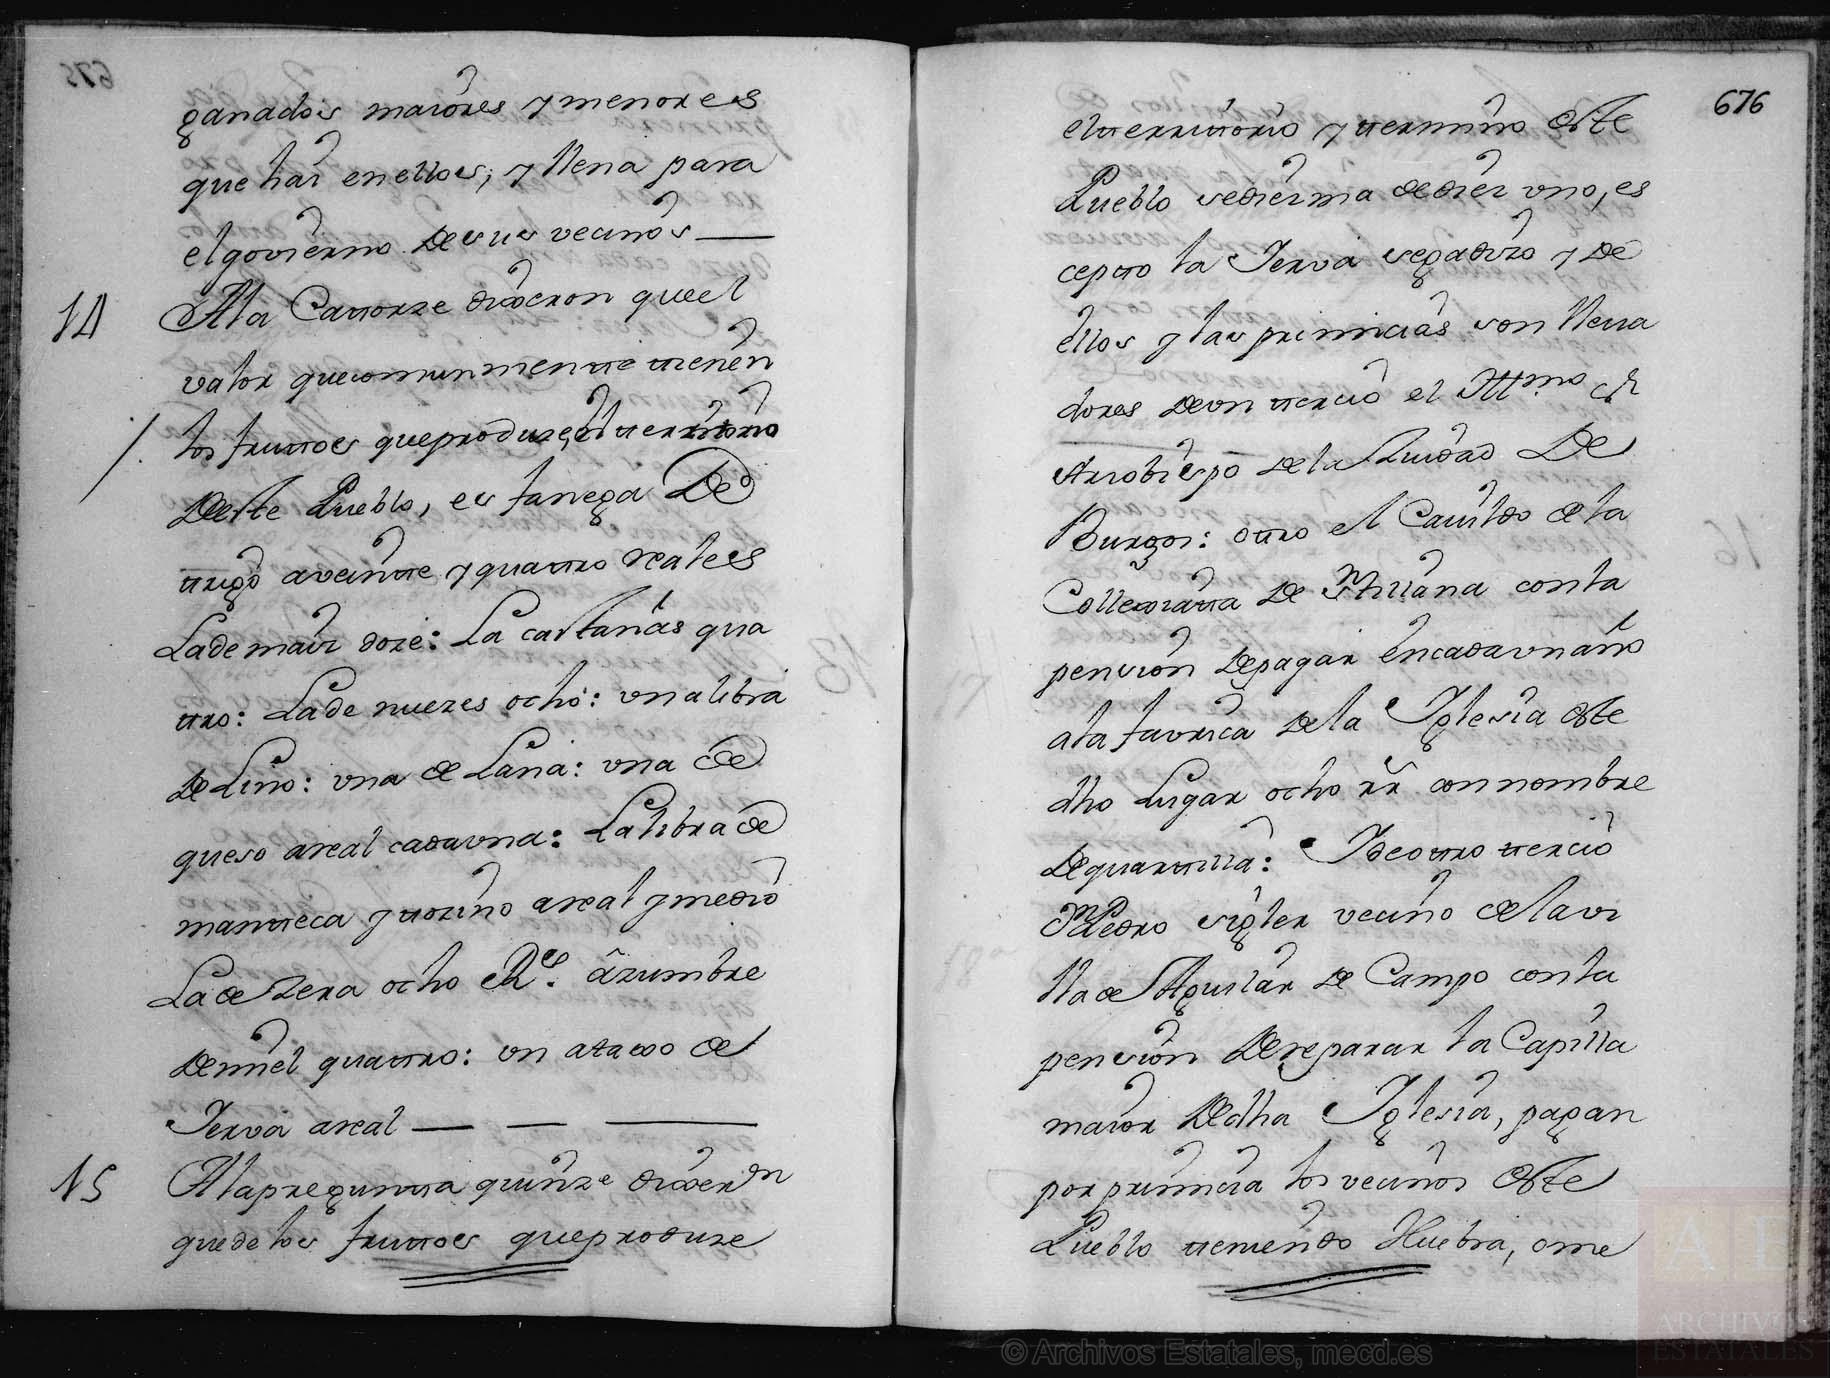 ganados maiores y menores
que hai en ellos, y llena para
el govierno de sus vecinos
14 A la Cattorze dixeron que el
valor que comunmentte ttienen
los fruttos que produze el tterrittorio
de estte Pueblo, es fanega de
ttrigo a veintte y quattro reales
La de maiz doze: La casttañas qua
ttro: La de nuezes ocho: una libra
de Lino: una de Lana: una de
queso a real cada una: La libra de
mantteca y ttozino a real y medio
La de zera ocho R.s azumbre
de miel quattro: un atado de
Yerva a real
15 A la preguntta quinze dixeron
que de los fruttos que produze
676
el tterrittorio y ttermino de estte
Pueblo se diezma de diez uno, es
ceptto la Yerva segadizo y de
ellos y las primicias son lleva
dores de un ttercio el Ill.mo S.r
Arzobispo de la Ziudad de
Burgos: ottro el Cavildo de la
Collexiatta de S.ttillana con la
pension de pagar en cada un año
a la favrica de la Iglesia de estte
dho Lugar ocho rr.s con nombre
de quarttilla: Y de ottro ttercio
Pedro sigler vecino de la vi
lla de Aguilar de Campo con la
pension de reparar la Capilla
maior de dha Iglesia, pagan
por primicia los vecinos de estte
Pueblo tteniendo Huebra, o me
© Archivos Estatales, mecd.es
ARCHIVOS
ESTATALES